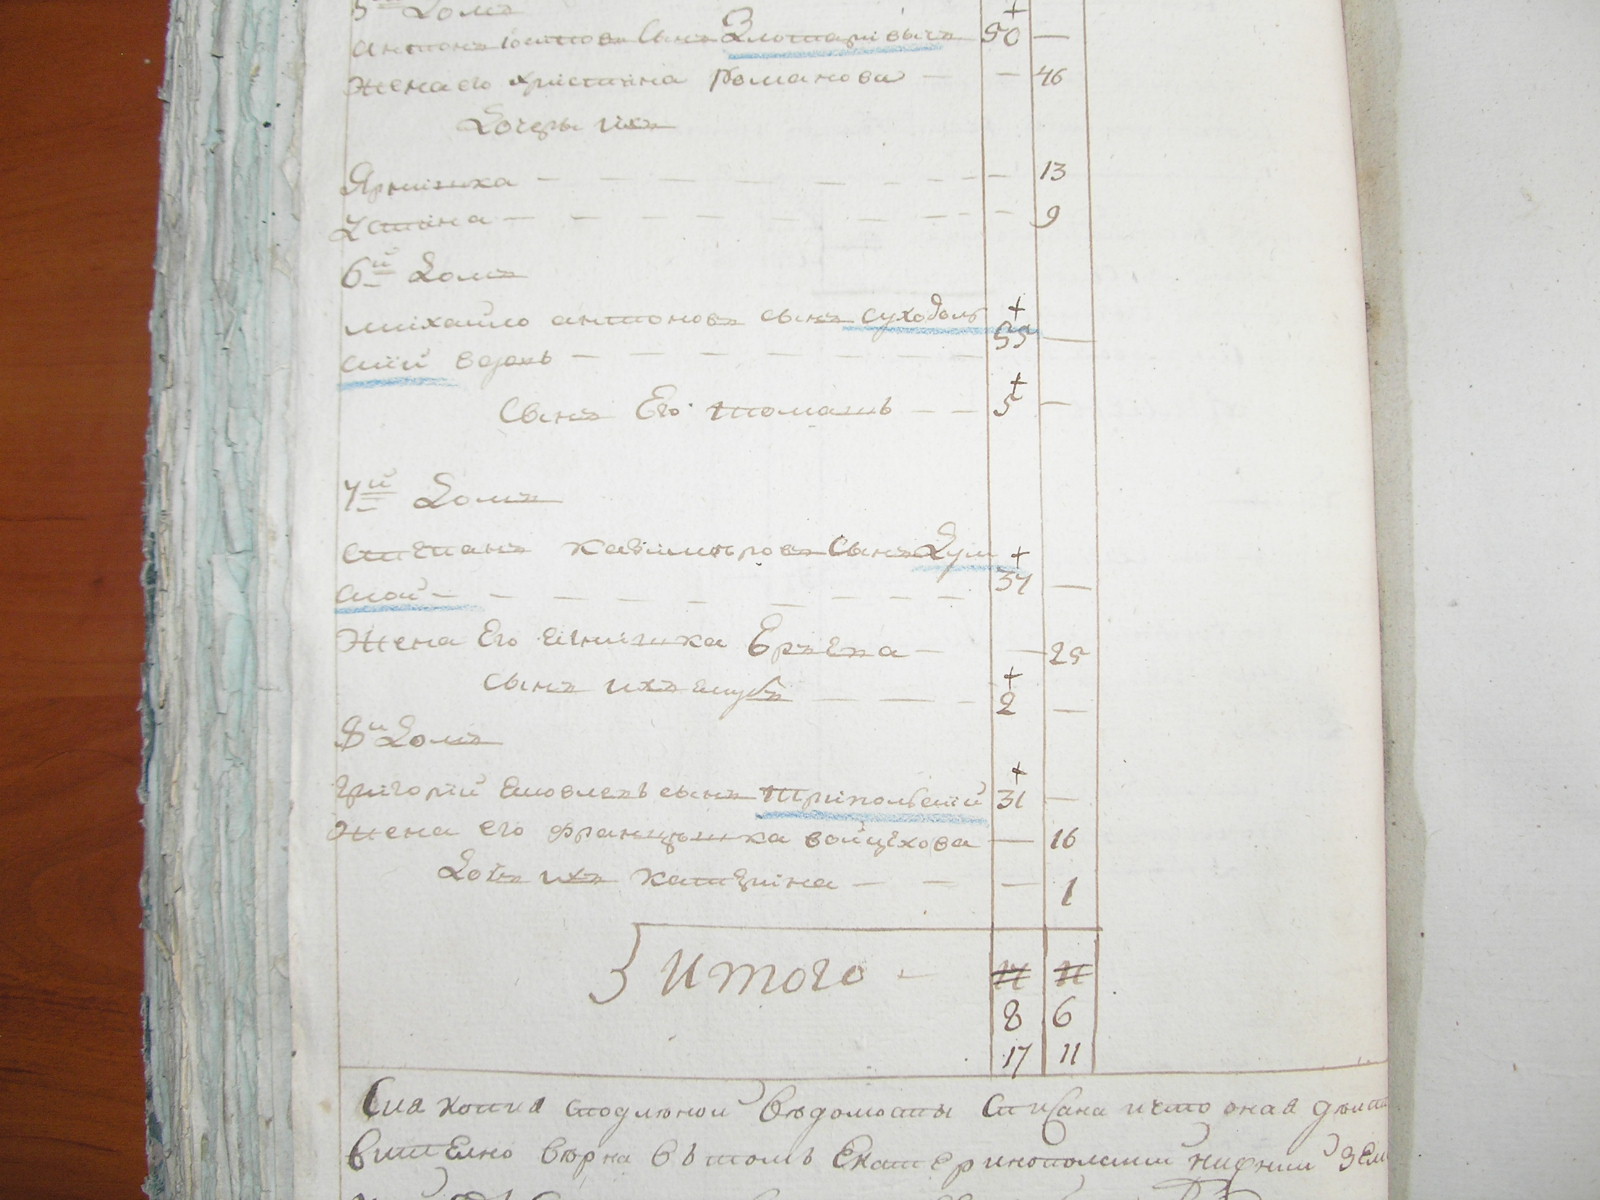 5й Домъ
Антонъ сынъ 50 —
Жена его христина Романова — — 46
Дочеры ихъ
— — — 13
Устина — — — 9
6й Домъ
михайло антоновъ сынъ суходоль 55 —
скій вдовъ — — —
Сынъ Его томашъ — — 5 —
7й Домъ
степанъ казимѣровъ Сынъ Дум 37 —
ской — — —
Жена Его — — 25
сынъ ихъ якубъ — — 2 —
8й Домъ
григорій яковлевъ сынъ трипольскій 31 —
Жена его францышка войцѣхова — 16
Дочь ихъ катерина — — — 1
Итого —
8 6
17 11
Сия копия с подлѣной вѣдомосты списана и что оная дѣист
вително вѣрна въ томъ Екатеринополский нижний Зем